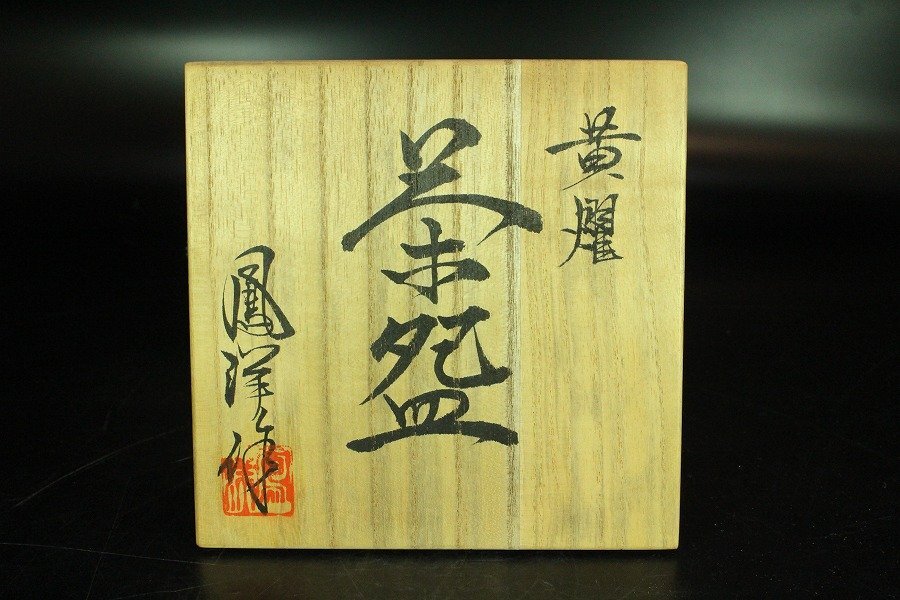 黄燿
茶盌
鳳洋作